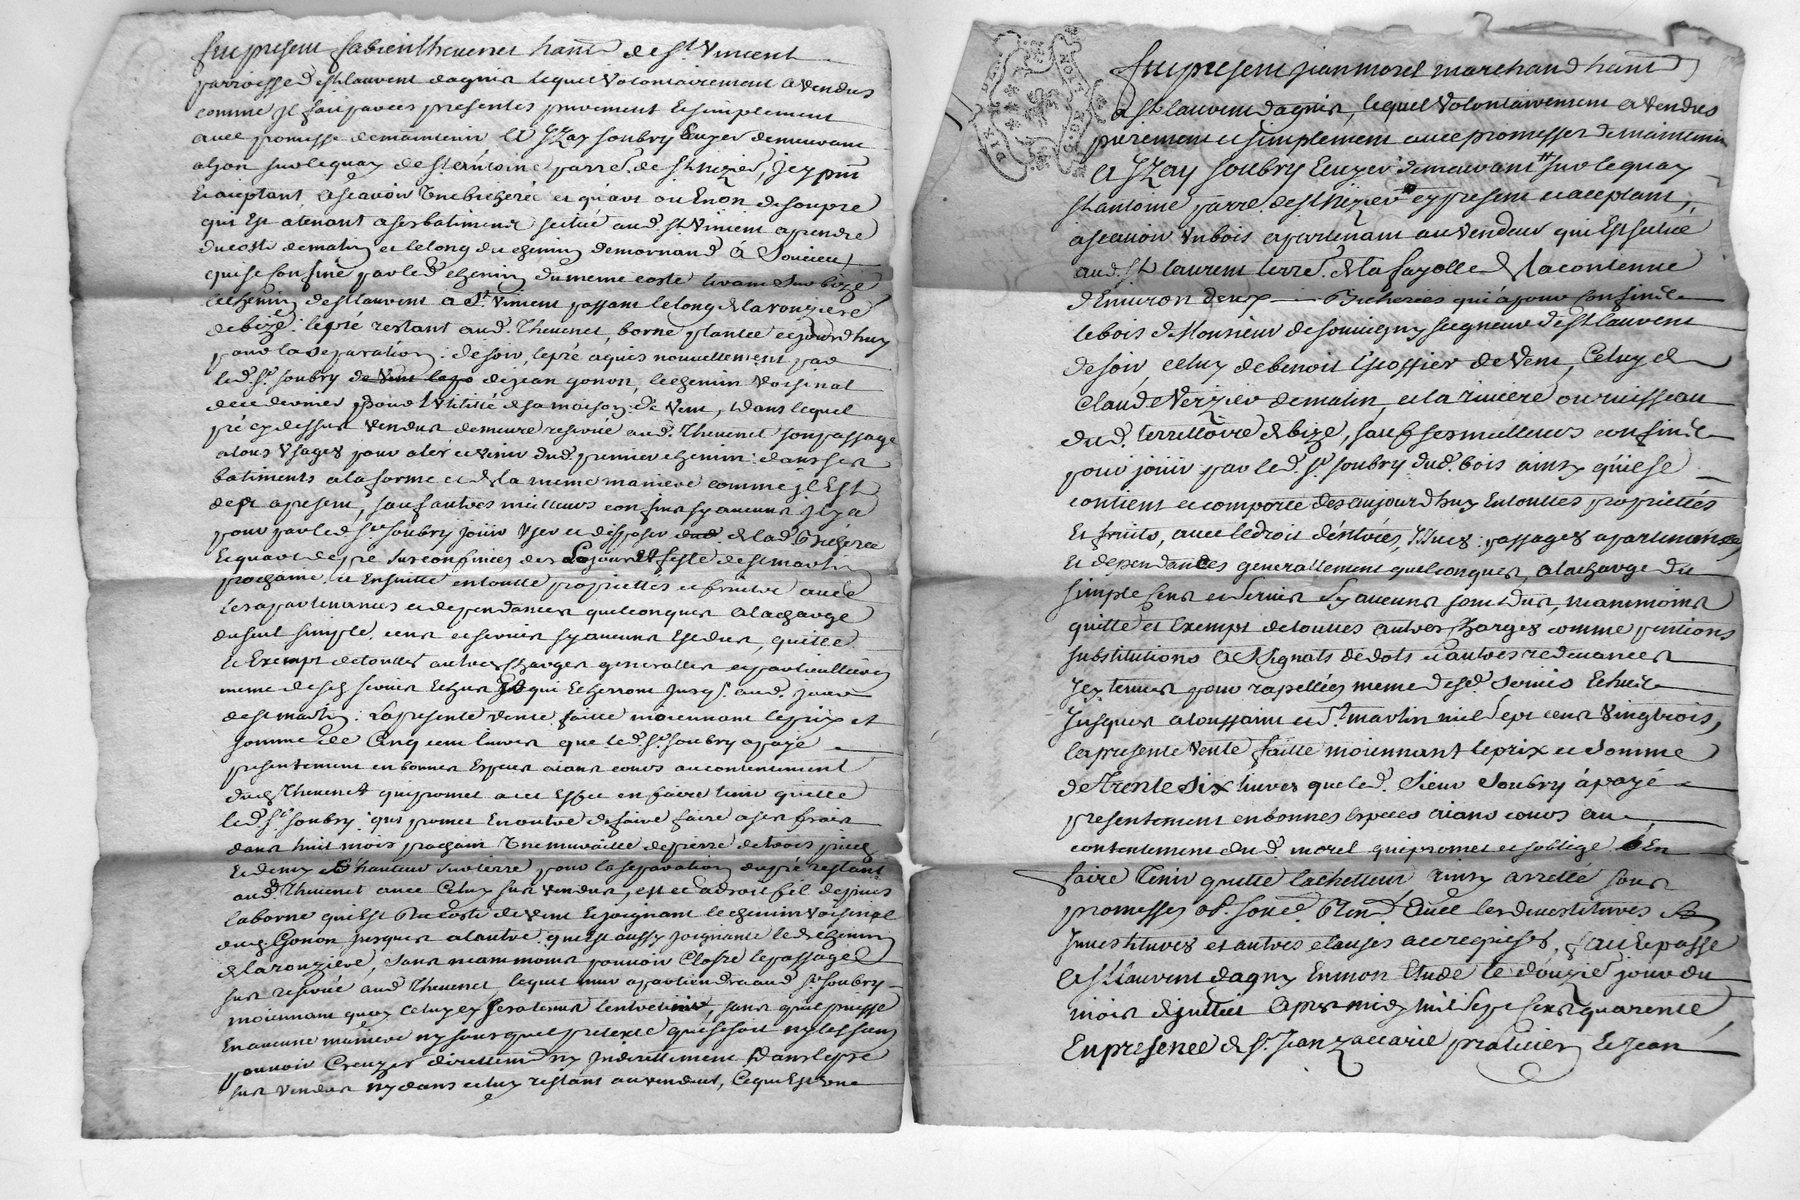 fut present fabien thevenet hant de St Vincent
parroisse de St laurent dagnis lequel Volontairement a Vendus
comme Jl fait par ces presentes purement Et simplement
avec promesse de maintenir Et Jzay soubry Ecuyer demeurant
alyon sur le quay de St antoine parre. de St Nizier, Jcy pnt
Et acceptant Ascavoir Une bicherée et quart ou Environ de son pre
qui Est atenant a ses batiments scitué aud. St Vincent a prendre
du costé de matin et le long du chemin de mornand A Soucieu
qui se confine par led. chemin du meme costé tirant sur bize
le chemin de St laurent a St Vincent passant le long de la ronziere
de bize, le pré restant aud. Thevenet, borne plantée cejourdhuy
pour la separation: de soir, le pré aquis nouvellement par
led. Sr. soubry de jean gonon, le chemin Voisinal
de ce dernier pour l'Utilité de sa maison: de Vent, dans lequel
pré cy dessus Vendus demeure reservé aud. Thevenet son passage
a tous Usages pour aler et venir dud. premier chemin: dans ses
batiments a la forme et de la meme maniere comme jl Est
de pt a present, sauf autres meilleurs confins sy aucuns jl y a
pour par led. Sr. soubry jouir User et disposer de lad. Bicherée
Et quart de pré sus confinées des Lejour Et feste de St martin
prochaine et Ensuitte en toutte proprietté et fruits avec
les apartenances et dependances quelconques a la charge
du seul simple cens et servis sy aucuns Est dus, quitte
Et Exempt de touttes autres charges generalles et particullieres
meme desd. servis Echus qui Echerront jusq. aud. jour
de St martin: La presente Vente faitte moiennant le prix et
somme de Cinq cent livres que led. Sr. soubry a payé
presentement en bonnes Especes aians cours au contentement
dud. Thevenet qui promet avec Effet en faire tenir quitte
led. Sr. soubry, qui promet En outre de faire faire a ses frais
dans huit mois prochain Une muraille de pierre de trois pieds
Et demy d'hauteur sur terre pour la separation du pré restant
aud. Thevenet avec Celuy sus Vendus, et ce a droit fil depuis
la borne qui Est Du costé de Vent Et joignant le chemin Voisinal
dud. Gonon jusques a l'autre qui Est aussy joignante led. chemin
de la ronziere, sans neanmoins pouvoir Closre le passage
sus reservé aud. Thevenet, lequel mur apartiendra aud. Sr. soubry
moiennant quoy celuy cy sera tenus l'entretenir, sans qu'il puisse
En aucune maniere ny sous quel pretexte que ce soit ny les siens
pouvoir Creuzer directtement ny Indirectement dans le pré
sus Vendus ny dans celuy restant au vendeur, Ce qui Est
fut present jean morel marchand hant
a St laurent dagnis, lequel Volontairement a Vendus
purement et simplement avec promesses de maintenir
A Jzay soubry Ecuyer demeurant sur le quay
St antoine parre. de St Nizier cy present et acceptant,
ascavoir Un bois apartenant au Vendeur qui Est scitué
aud. St laurent terre. de la fayolle de la contenue
d'Environ deux Bicherées qui a pour confins
le bois de Monsieur de souvigny seigneur de St laurent
de soir celuy de benoit Escoffier de Vent, Celuy de
Claude Verzier de matin, et la riviere ou ruisseau
dud. territoire de bize, sauf ses meilleurs confins
pour jouir par led. Sr. soubry dud. bois ainsy qu'il se
contient et comporte des aujourdhuy En touttes proprietés
Et fruits, avec le droit d'entrées, Issues, passages apartenances
Et dependances generallement quelconques, a la charge du
simple cens et servis sy aucuns sont dus, neanmoins
quitte et Exempt de touttes autres charges comme pentions
substitutions Assignats de dots et autres redevances
Jcy tenues pour rapellées meme desd. servis Echus
Jusques a toussaint et St martin mil sept cens vingt trois,
la presente Vente faitte moiennant le prix et somme
de trente six livres que led. Sieur Soubry a payé
presentement en bonnes Especes aians cours au
contentement dud. morel qui promet et s'oblige En
faire tenir quitte l'achetteur ainsy arretté sous
promesses ob. soue. Et Avec les devestitures
Jnvestitures et autres clauses a ce requises, fait Et passé
A St laurent dagny En mon Etude le douzie. jour du
mois de juillet apres midy mil sept cens quarente
En presence de Sr. jean zaccarie praticien Et jean